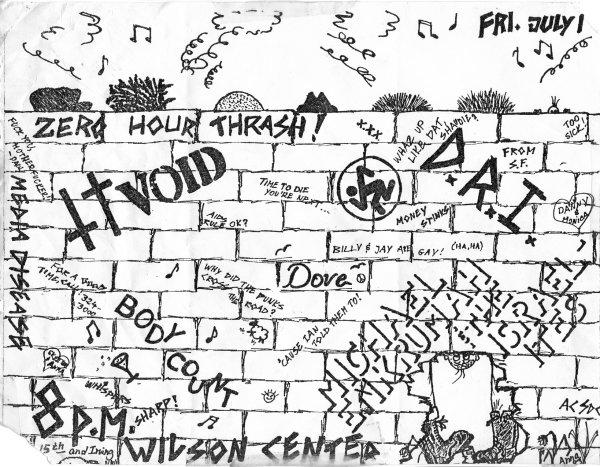 FRI. JULY 1
ZERO HOUR THRASH!
XXX
TOO
SICK!
WHAZ UP
LIKE DAT,
FROM
S.F.
VOID
DRI
TIME TO DIE
YOU'RE NEXT...
AIDS
RULE OK?
MONEY
STINKS
DANNY
&
MONICA
MEDIA DISEASE
BILLY & JAY ARE GAY! (HA, HA)
FOR A GOOD
TIME CALL
WHY DID THE PUNKS
CROSS THE ROAD?
Dove
'CAUSE IAN
TOLD THEM TO!
BODY
COUNT
WHISPERS
8 P.M. SHARP!
AC⚡DC
15th and Irving
WILSON CENTER